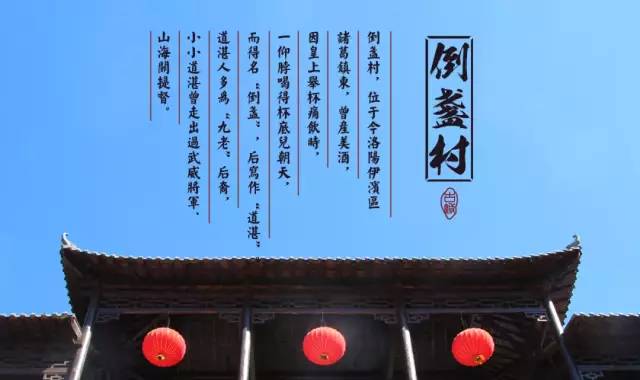 倒盞村
倒盞村，位于今洛陽伊濱區
諸葛鎮東，曾産美酒，
因皇上舉杯痛飲時，
一仰脖喝得杯底兒朝天，
而得名“倒盞”，后寫作“道湛”。
道湛人多為“九老”后裔，
小小道湛曾走出過武威將軍、
山海關提督。